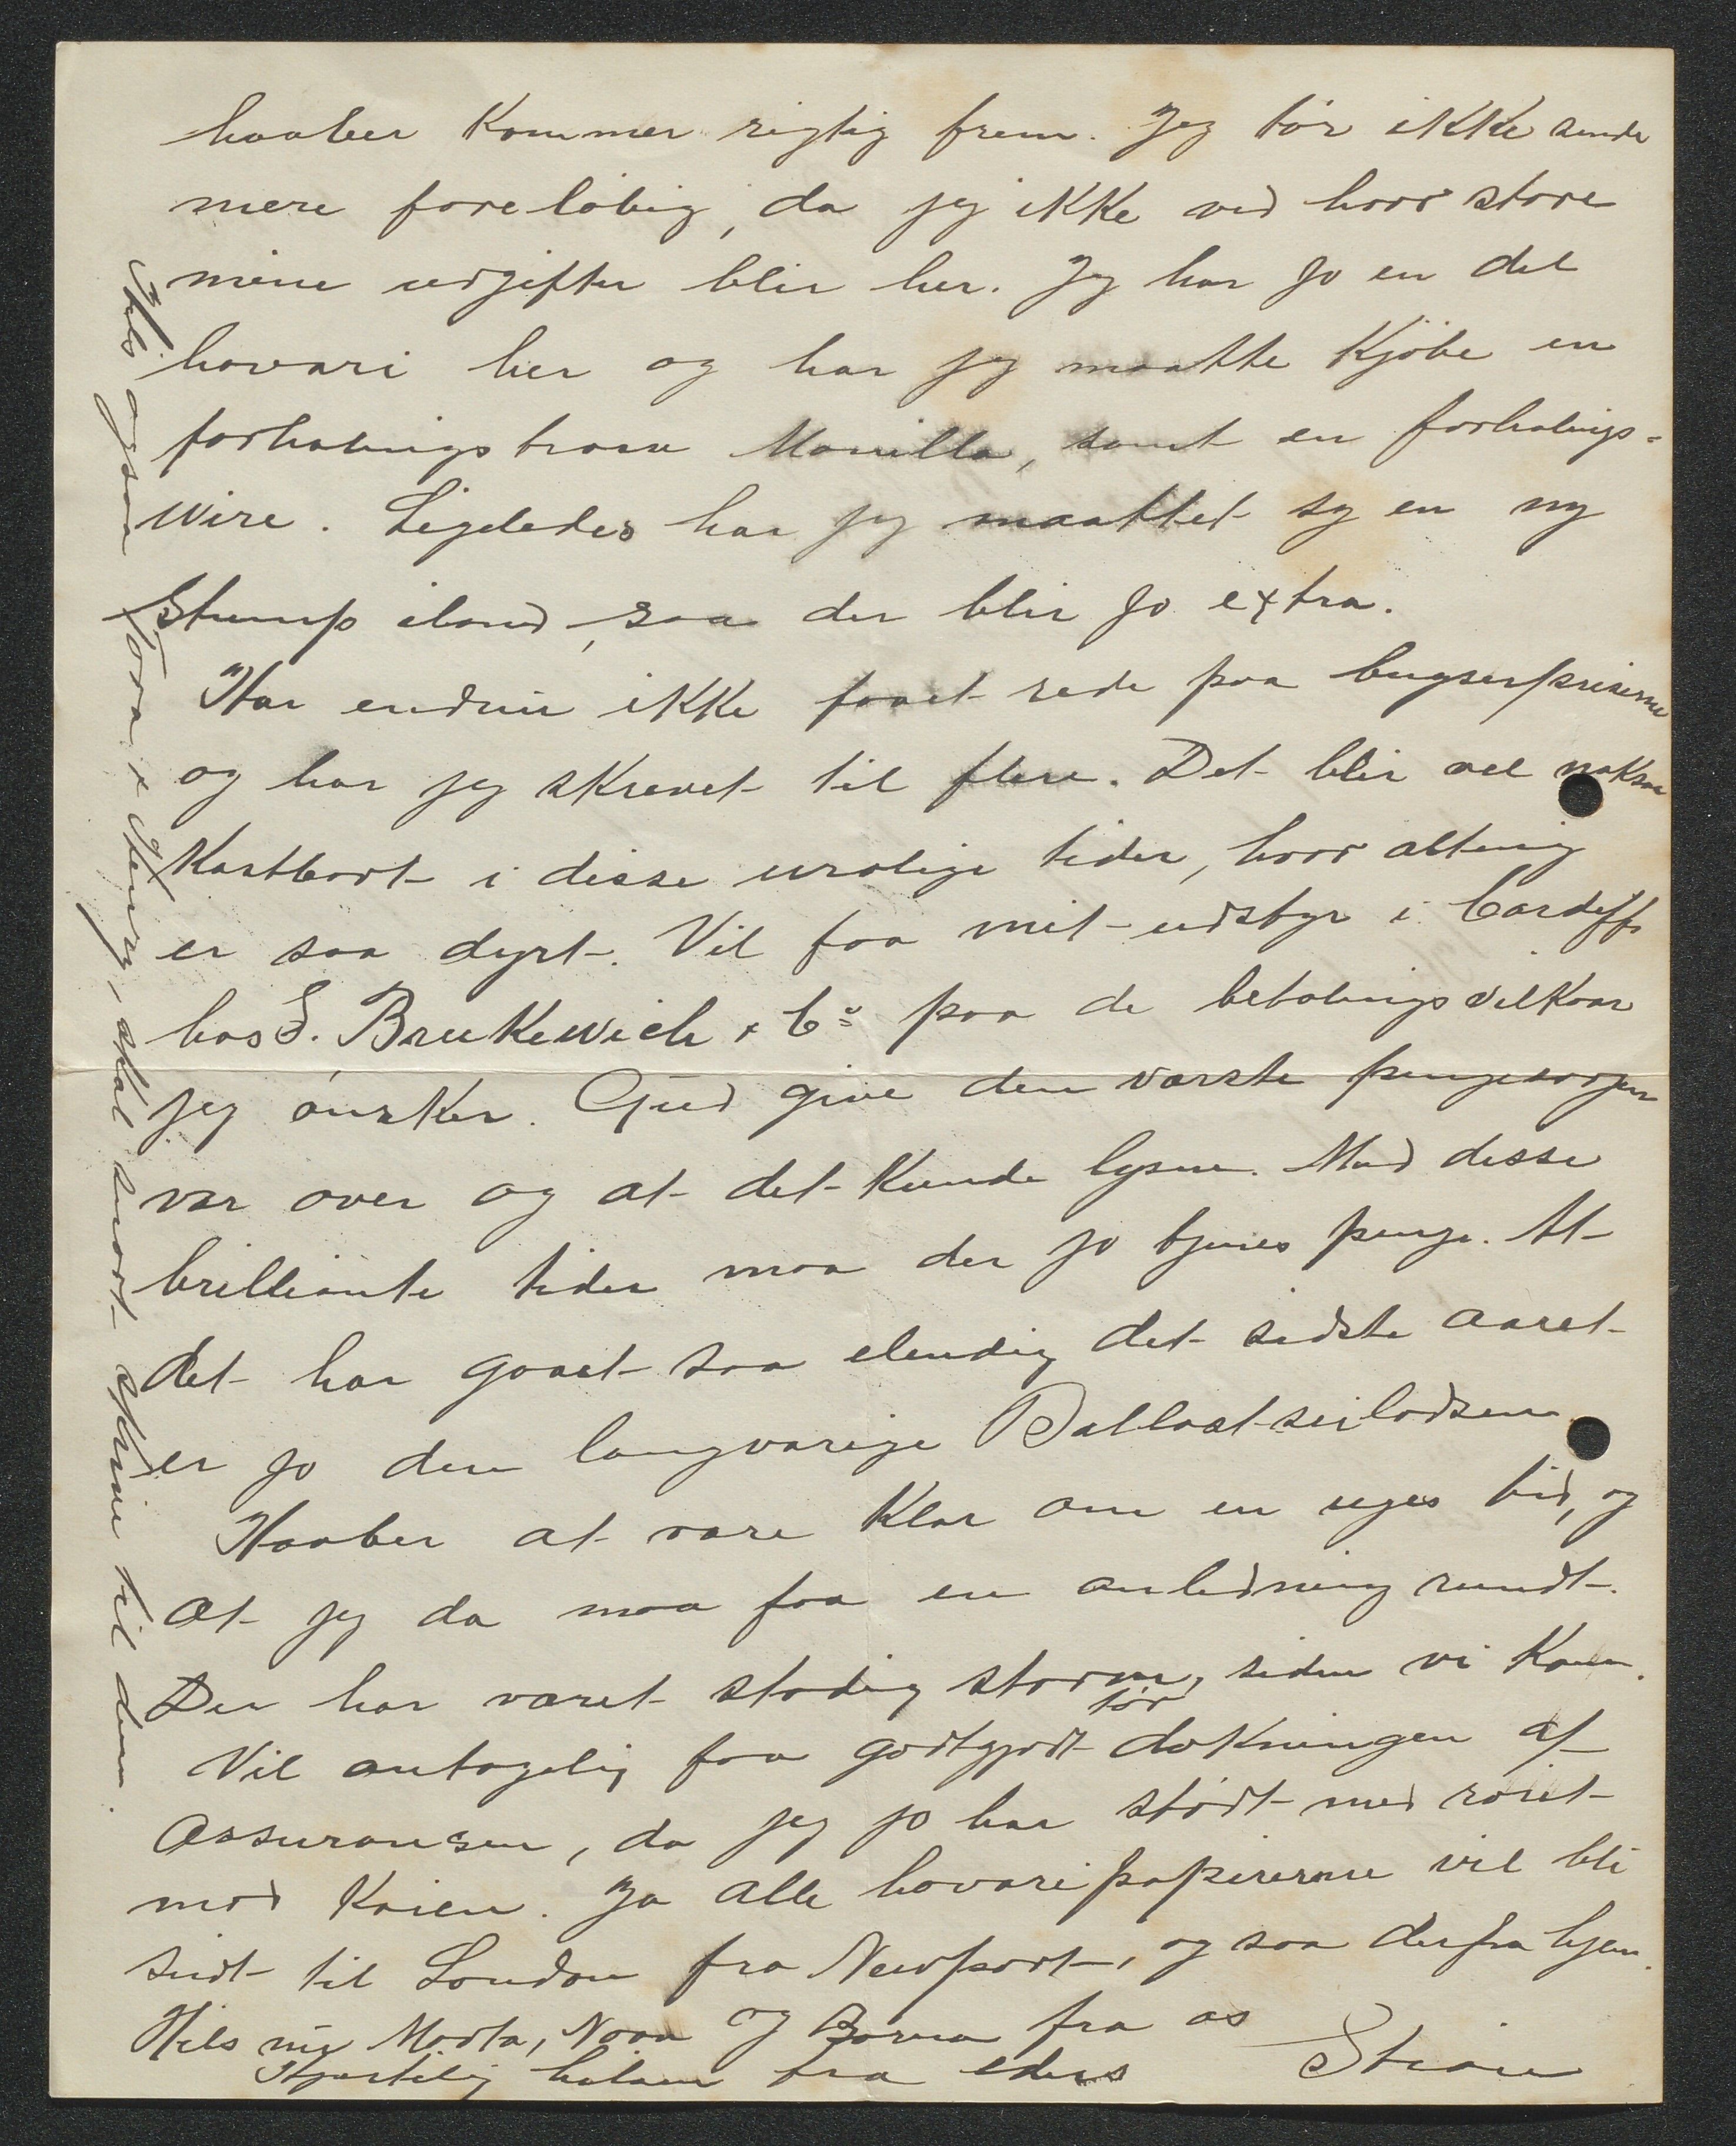 haaber kommer rigtig frem. Jeg tør ikke sende
mere foreløbig, da jeg ikke ved hvor store
mine udgifter blir her. Jeg har jo en del
havari her og har jeg maatte kjøbe en
forhalingstrosse Manilla, samt en forhalings=
wire. Ligeledes har jeg maattet sy en ny
Stump iland, saa der blir jo extra.
Har endnu ikke faaet rede paa bugserpriserne
og har jeg skrevet til flere. Det blir vel noksaa
kostbart i disse urolige tider, hvor alting
er saa dyrt. Vil faa mit udstyr i Cardiff
hos S. Brukewich & Co paa de betalingsvilkaar
jeg ønsker. Gud give den værste pengesorgen
var over og at det kunde lysne. Med disse
brilliante tider maa der jo tjenes penge. At
det har gaaet saa elendig det sidste aaret
er jo den langvarige Ballastseiladsen.
Haaber at være klar om en uges tid, og
at jeg da maa faa en anledning rundt.
Der har været stadig storm, siden vi kom.
Vil antagelig faa godtgjort tør dokningen af
Assuransen, da jeg jo har stødt med roret
mod kaien. Ja alle havaripapirerne vil bli
sendt til London fra Newport, og saa derfra hjem.
Hils mig Marta, Nora og Borna fra os
Hjertelig hilsen fra eders
Hils ogsaa Tora & Henry, skal snart skrive til dem.